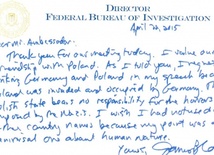 DIRECTOR
FEDERAL BUREAU OF INVESTIGATION
April 2015
Mr. Ambassador-
Thank you for our meeting today. I value our
friendship with Poland. As I told you, I regret
Germany and Poland in my speech because
Poland was invaded and occupied by Germany. The
Polish state bears no responsibility for the horrors
imposed by the Nazis. I wish I had not used
other country names because my point was a
universal one about human nature.
Yours,